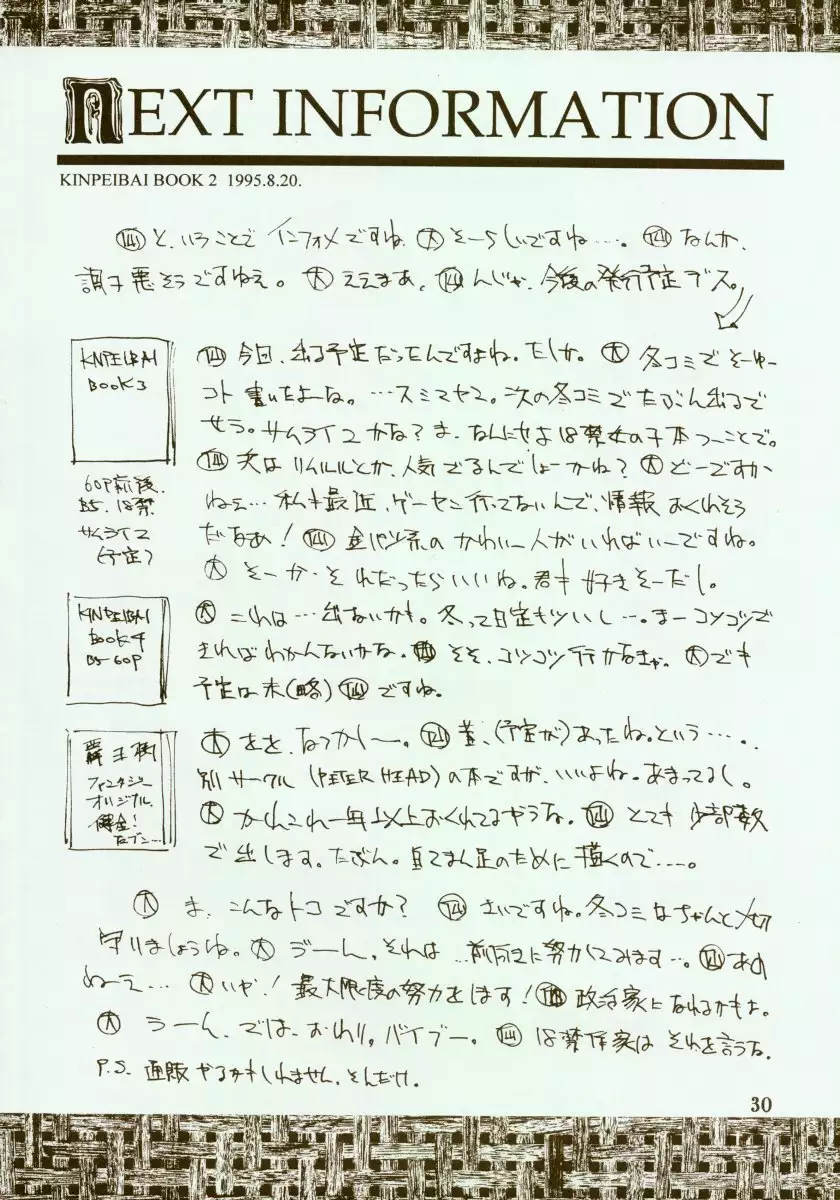 NEXT INFORMATION
KINPEIBAI BOOK 2 1995.8.20.
と、いうことで インフォメですね。 大 そーらしいですね……。 なんか、
調子悪そうですねえ。 大 ええまあ。 んじゃ、今後の発行予定デス。
KINPEIBAI
BOOK3
60P前後、
B5、18禁
サムライ2
(予定)
今回、出る予定だったんですよね。たしか。 大 冬コミでそーゆー
コト書いたよーな。…スミマセン。次の冬コミでたぶん出るで
せう。サムライ2かな?ま、なんにせよ18禁女の子本つーことで。
次はリムルルとか、人気でるんでしょーかね? 大 どーですか
ねぇ…私も最近、ゲーセン行ってないんで、情報おくれそう
だなあ! 金パツ系のかわいー人がいればいーですね。
大 そーか・それだったらいいね。君も好きそーだし。
KINPEIBAI
BOOK4
B5-60P
大 これは…出ないかも。冬って日定もツいし…。まーコツコツで
きればわかんないかな。 そそ、コツコツ行かなきゃ。 大 でも
予定は未(略) ですね。
覇王樹
ファンタジー
オリジナル
大 をを、なつかし〜。 昔、(予定が)あったね。という……。
別サークル (PETER HEAD)の本ですが、いいよね。あまってるし。
大 かれこれ一年以上おくれてるやうな。 とても少部数
で出します。たぶん。 のために描くので……。
大 ま、こんなトコですか? さいですね。冬コミはちゃんと〆切
守りましょうね。 大 うーん、それは…前向きに努力してみます…。 あの
ねーえ… 大 いや!最大限度の努力をします! 政治家になれるかもよ。
大 うーん、では、おわり。バイブー。 18禁作家はそれを言うな。
P.S. 通販やるかもしれません。そんだけ。
30